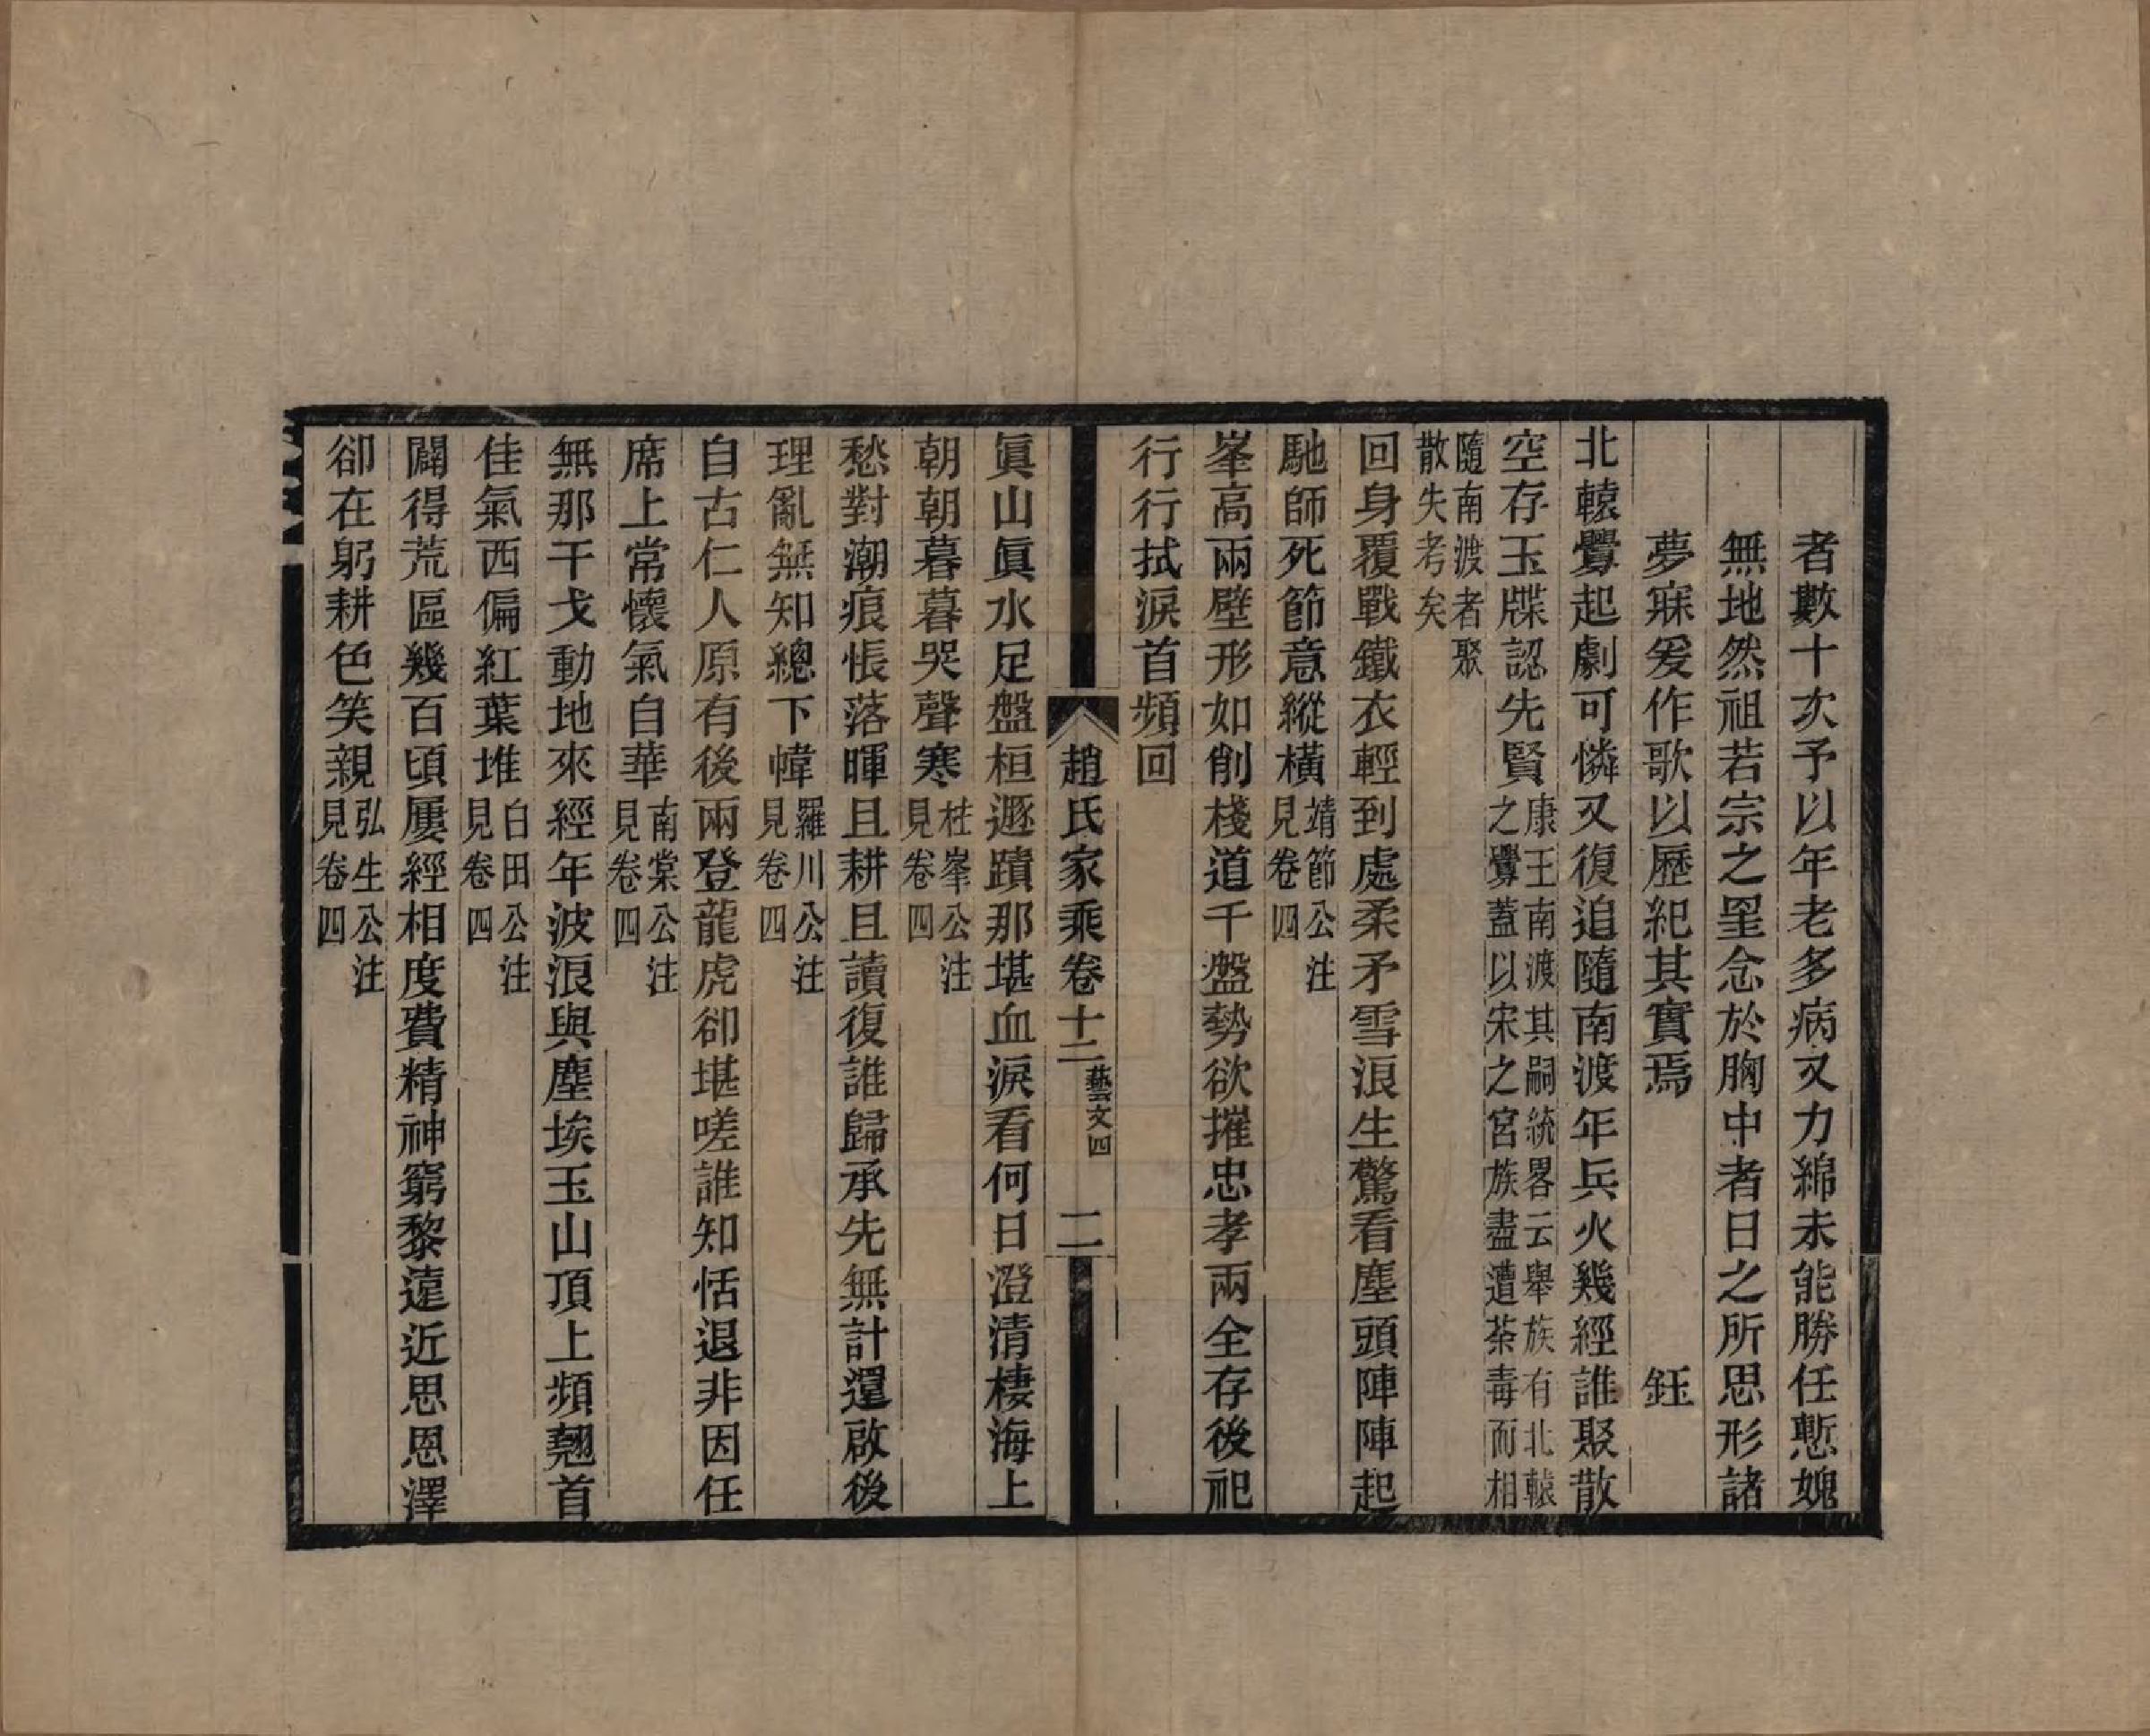 者數十次予以年老多病又力綿未能勝任慙媿
無地然祖若宗之罣念於胸中者日之所思形諸
夢寐爰作歌以歷紀其實焉　鈺
北轅釁起劇可憐又復追隨南渡年兵火幾經誰聚散
空存玉牒認先賢康王南渡其嗣統畧云舉族有北轅之釁蓋以宋之宮族盡遭荼毒而相
隨南渡者聚散失考矣
回身覆戰鐵衣輕到處柔矛雪浪生驚看塵頭陣陣起
馳師死節意縱橫靖節公注見卷四
峯高兩壁形如削棧道千盤勢欲摧忠孝兩全存後祀
行行拭淚首頻回
趙氏家乘卷十二藝文四　二
眞山眞水足盤桓遯蹟那堪血淚看何日澄清棲海上
朝朝暮暮哭聲寒桂峯公注見卷四
愁對潮痕悵落暉且耕且讀復誰歸承先無計還啟後
理亂無知總下幃羅川公注見卷四
自古仁人原有後兩登龍虎卻堪嗟誰知恬退非因任
席上常懷氣自華南棠公注見卷四
無那干戈動地來經年波浪與塵埃玉山頂上頻翹首
佳氣西偏紅葉堆白田公注見卷四
闢得荒區幾百頃屢經相度費精神窮黎遠近思恩澤
卻在躬耕色笑親弘生公注見卷四